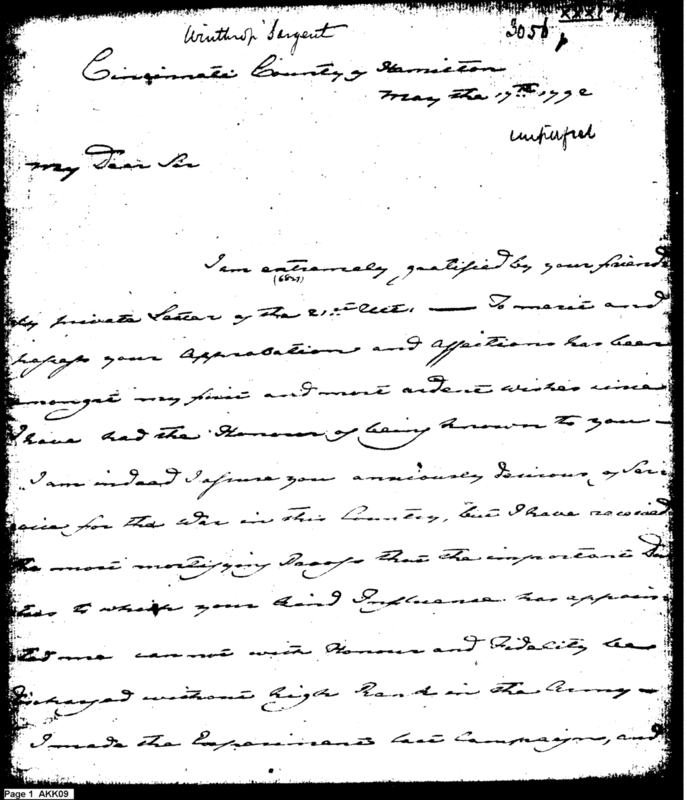 Winthrop Sargent
3056
Cincinnati County of Hamilton
May the 17th 1792
imperfect
My Dear Sir
I am extremely gratified by your friend
ly private Letter of the 21st Ult. — To merit and
possess your Approbation and Affections has been
amongst my first and most ardent wishes since
I have had the Honour of being known to you —
I am indeed I assure you anxiously desirous of Ser-
vice for the War in this Country, but I have received
the most mortifying that the important Du
ties to which your kind Influence has appoin
ted me cannot with Honour and Fidelity be
discharged without high Rank in the Army —
I made the Experiment last Campaign, and
Page 1 AKK09